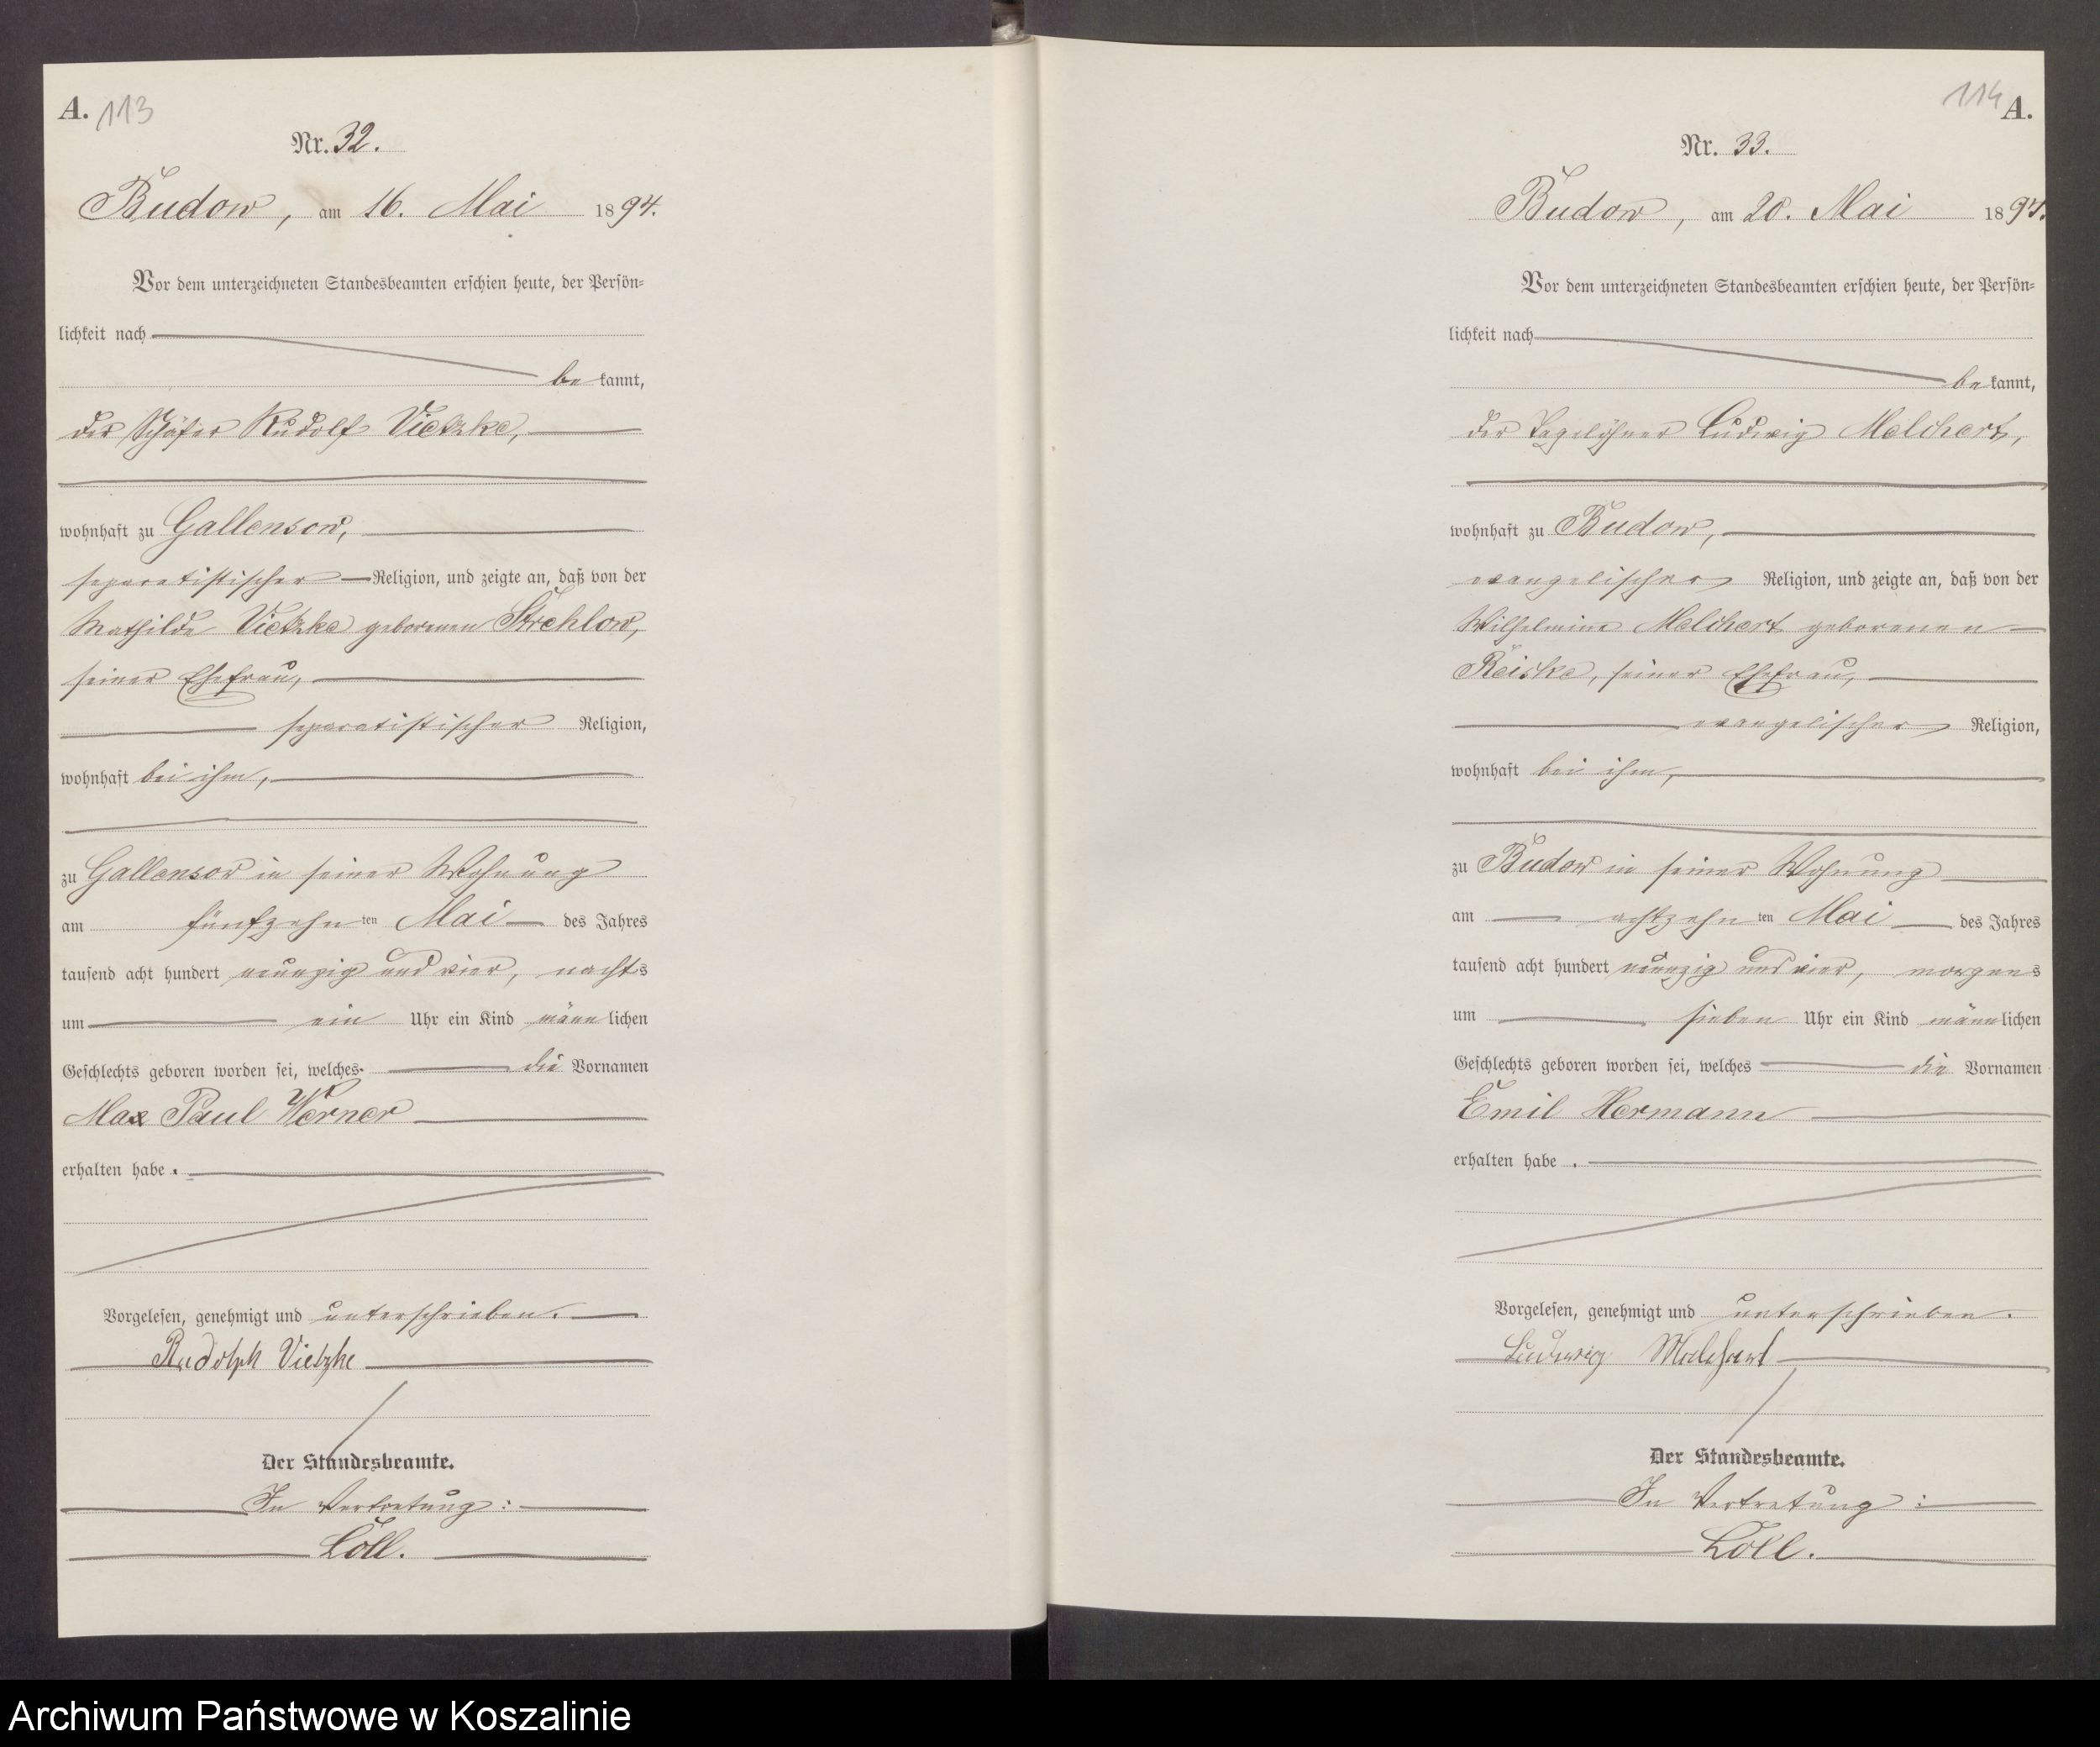 A. 113
Nr. 32.
Budow, am 16. Mai 1894.
Vor dem unterzeichneten Standesbeamten erschien heute, der Persön=
lichkeit nach
be kannt,
der Schäfer Rudolf Vietzke,
wohnhaft zu Gallensow,
separatistischer Religion, und zeigte an, daß von der
Mathilde Vietzke geborenen Strehlow,
seiner Ehefrau,
separatistischer Religion,
wohnhaft bei ihm,
zu Gallensow in seiner Wohnung
am fünfzehn ten Mai des Jahres
tausend acht hundert neunzig und vier, nachts
um ein Uhr ein Kind männlichen
Geschlechts geboren worden sei, welches die Vornamen
Max Paul Werner
erhalten habe.
Vorgelesen, genehmigt und unterschrieben.
Rudolph Vietzke
Der Standesbeamte.
In Vertretung:
Löll.
114 A.
Nr. 33.
Budow, am 20. Mai 1894.
Vor dem unterzeichneten Standesbeamten erschien heute, der Persön=
lichkeit nach
be kannt,
der Tagelöhner Ludwig Melchert,
wohnhaft zu Budow,
evangelischer Religion, und zeigte an, daß von der
Wilhelmine Melchert geborenen
Reiske, seiner Ehefrau,
evangelischer Religion,
wohnhaft bei ihm,
zu Budow in seiner Wohnung
am achtzehn ten Mai des Jahres
tausend acht hundert neunzig und vier, morgens
um sieben Uhr ein Kind männlichen
Geschlechts geboren worden sei, welches die Vornamen
Emil Hermann
erhalten habe.
Vorgelesen, genehmigt und unterschrieben.
Ludwig Melchert
Der Standesbeamte.
In Vertretung:
Löll.
Archiwum Państwowe w Koszalinie